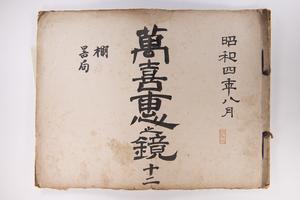 昭和四年八月
萬喜恵之鏡 十二
棚